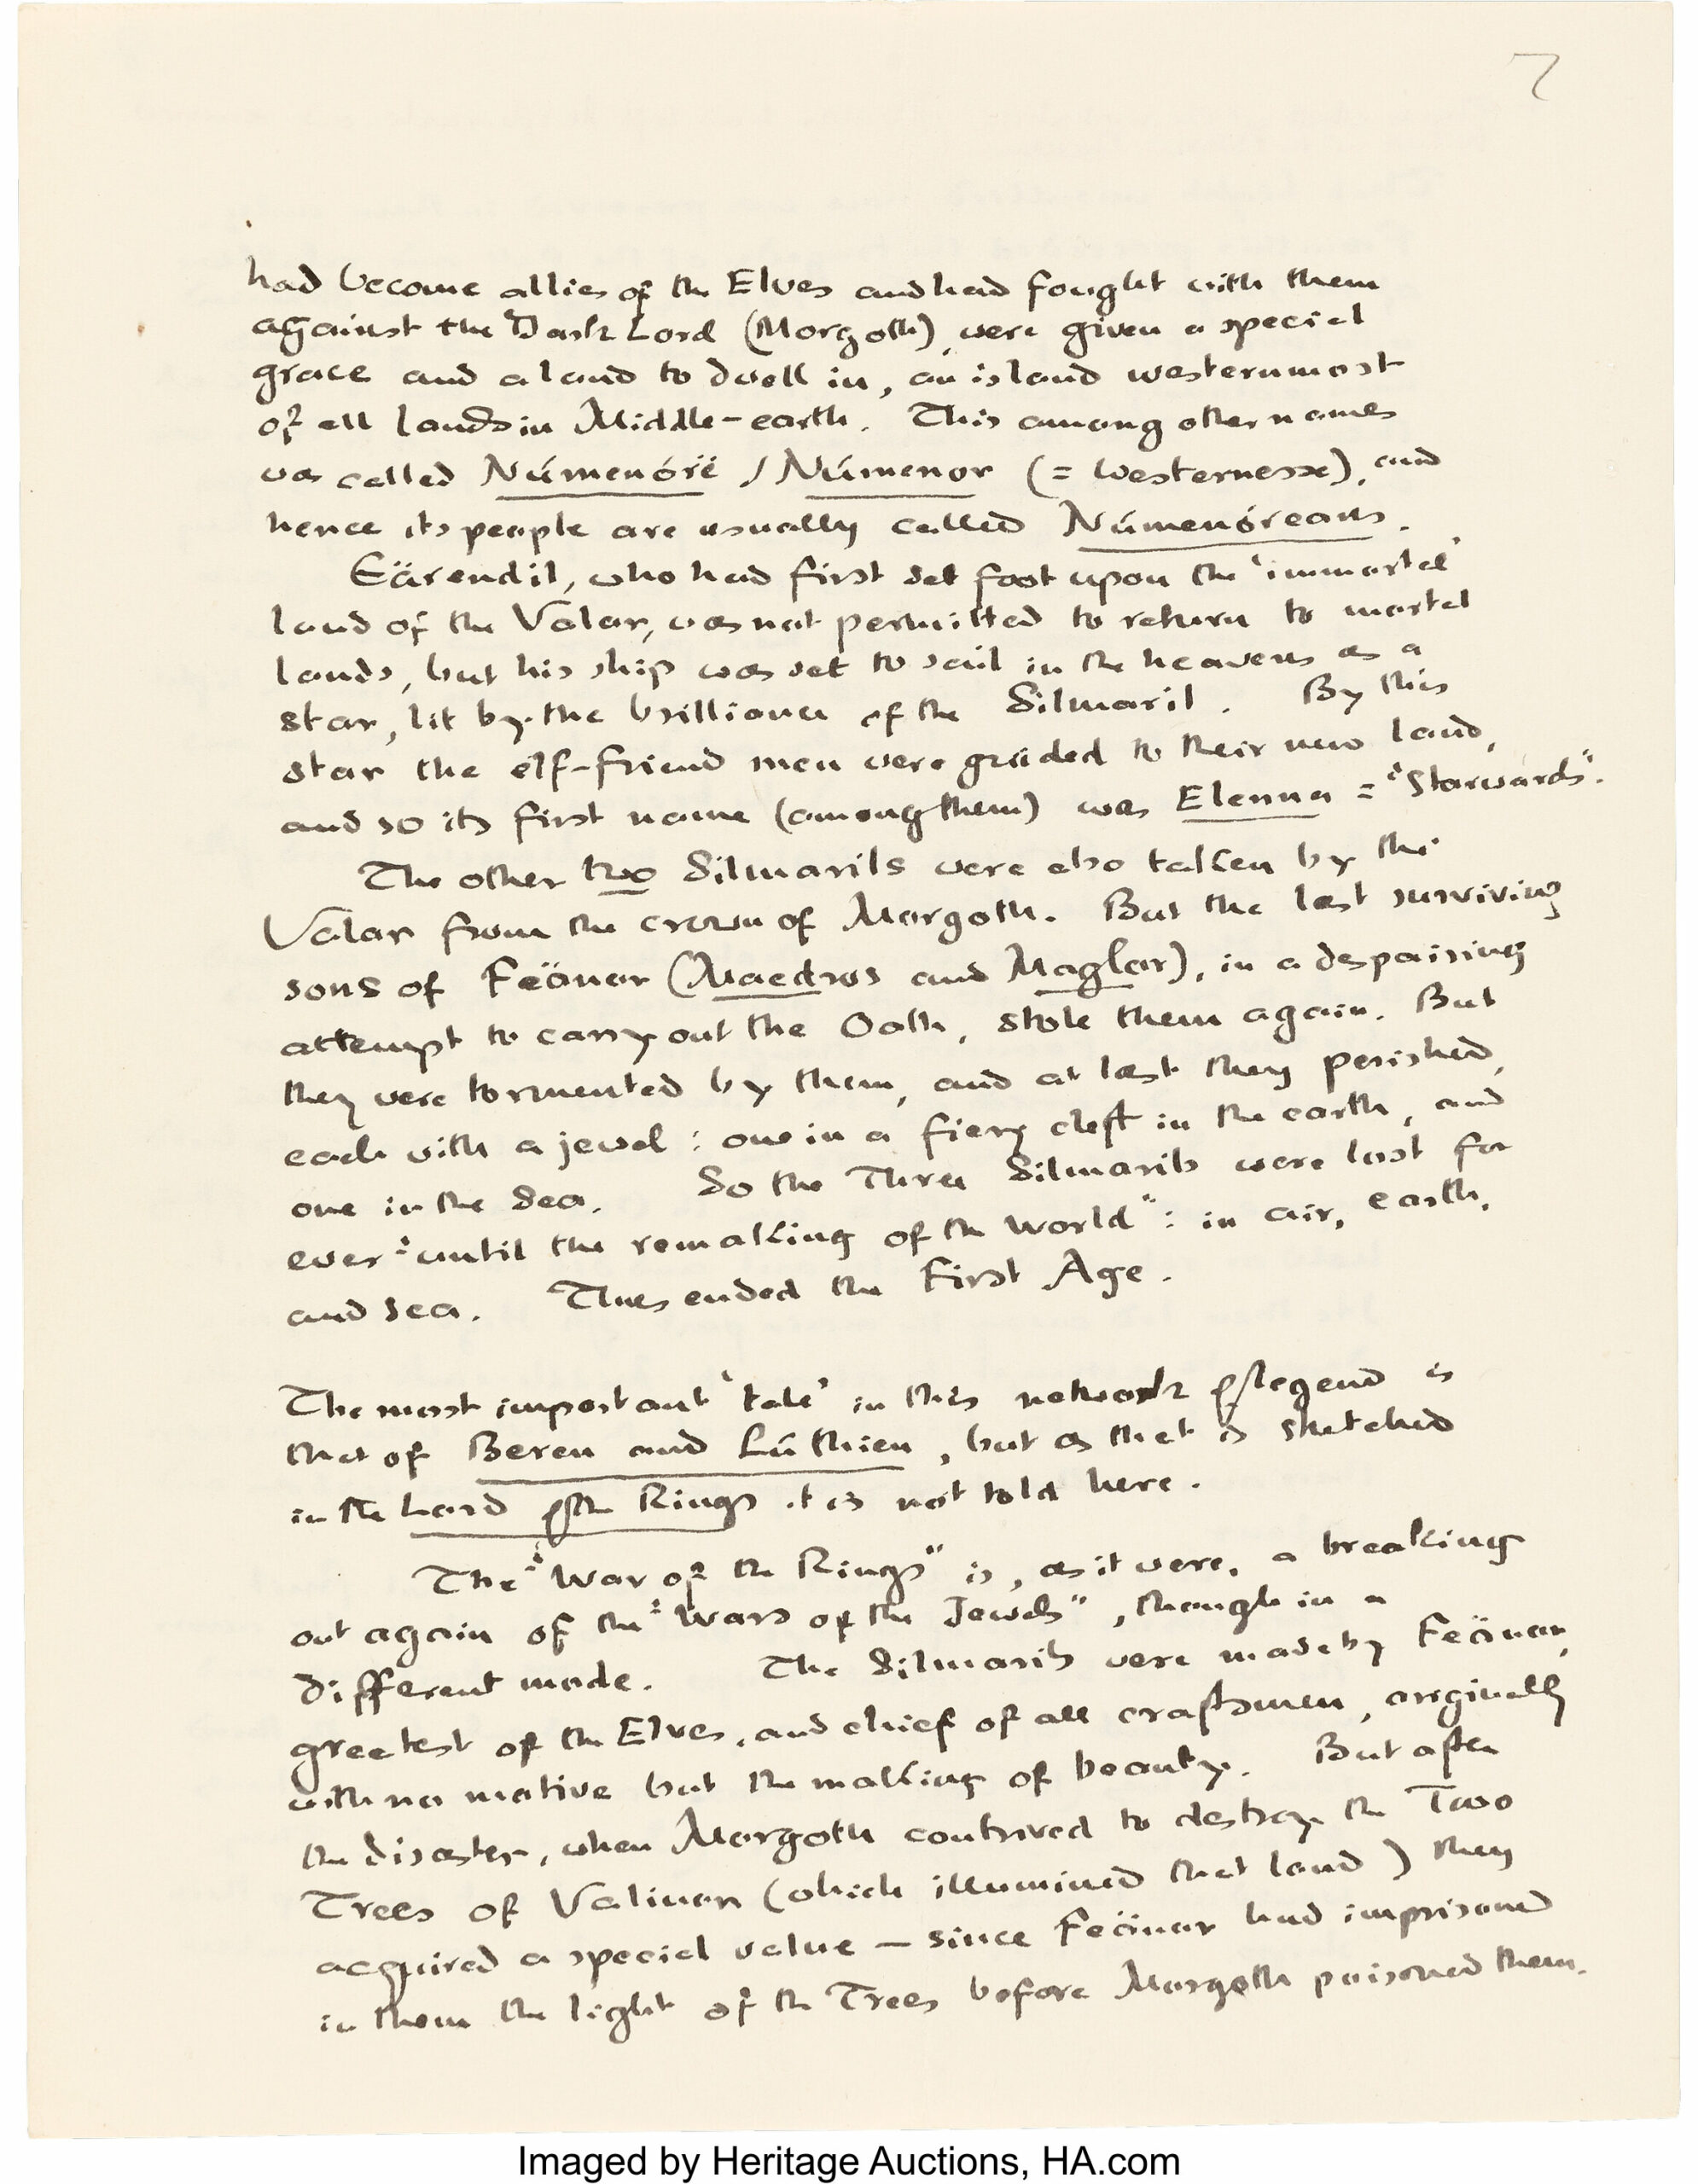 7
had become allies of the Elves and had fought with them
against the Dark Lord (Morgoth), were given a special
grace and a land to dwell in, an island westernmost
of all lands in Middle-earth. This among other names
was called Númenórë / Númenor (= Westernesse), and
hence its people are usually called Númenóreans.
Eärendil, who had first set foot upon the 'immortal'
land of the Valar, was not permitted to return to mortal
lands, but his ship was set to sail in the heavens as a
star, lit by the brilliance of the Silmaril. By this
star the elf-friend men were guided to their new land,
and so its first name (among them) was Elenna = "Starwards".
The other two Silmarils were also taken by the
Valar from the crown of Morgoth. But the last surviving
sons of Fëänor (Maedros and Maglor), in a despairing
attempt to carry out the Oath, stole them again. But
they were tormented by them, and at last they perished,
each with a jewel: one in a fiery cleft in the earth, and
one in the Sea. So the Three Silmarils were lost for
ever "until the remaking of the World": in air, earth,
and sea. Thus ended the First Age.
The most important 'tale' in this network of legend is
that of Beren and Lúthien, but as that is sketched
in the Lord of the Rings it is not told here.
The "War of the Rings" is, as it were, a breaking
out again of the "Wars of the Jewels", though in a
different mode. The Silmarils were made by Fëänor,
greatest of the Elves, and chief of all craftsmen, originally
with no motive but the making of beauty. But after
the disaster, when Morgoth contrived to destroy the Two
Trees of Valinor (which illumined that land) they
acquired a special value – since Fëänor had imprisoned
in them the light of the Trees before Morgoth poisoned them.
Imaged by Heritage Auctions, HA.com